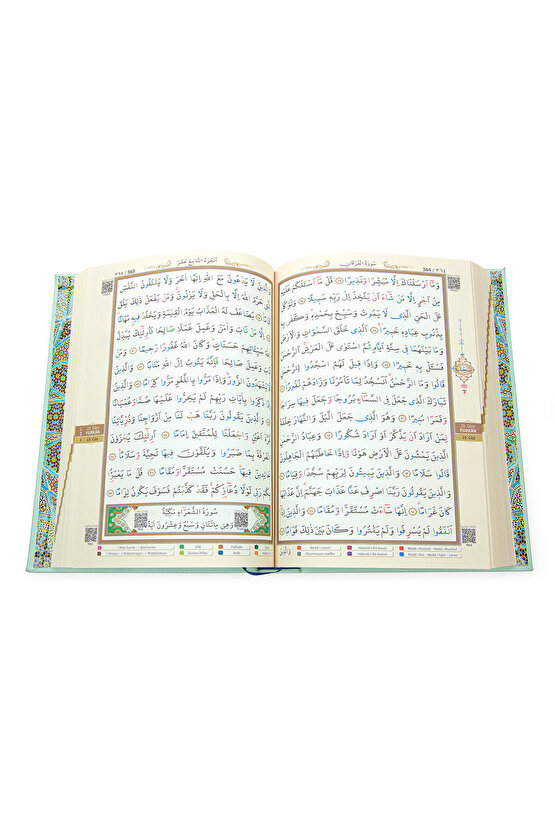 سُورَةُ الْفُرْقَانِ
364 / ٣٦٤
وَمَٓا اَرْسَلْنَاكَ اِلَّا مُبَشِّرًا وَنَذ۪يرًا قُلْ مَٓا اَسْـَٔلُكُمْ عَلَيْهِ
مِنْ اَجْرٍ اِلَّا مَنْ شَٓاءَ اَنْ يَتَّخِذَ اِلٰى رَبِّه۪ سَب۪يلًا وَتَوَكَّلْ
عَلَى الْحَيِّ الَّذ۪ي لَا يَمُوتُ وَسَبِّحْ بِحَمْدِه۪ وَكَفٰى بِه۪
بِذُنُوبِ عِبَادِه۪ خَب۪يرًا اَلَّذ۪ي خَلَقَ السَّمٰوَاتِ وَالْاَرْضَ
وَمَا بَيْنَهُمَا ف۪ي سِتَّةِ اَيَّامٍ ثُمَّ اسْتَوٰى عَلَى الْعَرْشِ اَلرَّحْمٰنُ
فَسْـَٔلْ بِه۪ خَب۪يرًا وَاِذَا ق۪يلَ لَهُمُ اسْجُدُوا لِلرَّحْمٰنِ
قَالُوا وَمَا الرَّحْمٰنُ اَنَسْجُدُ لِمَا تَأْمُرُنَا وَزَادَهُمْ نُفُورًا
تَبَارَكَ الَّذ۪ي جَعَلَ فِي السَّمَٓاءِ بُرُوجًا وَجَعَلَ ف۪يهَا سِرَاجًا
وَقَمَرًا مُن۪يرًا وَهُوَ الَّذ۪ي جَعَلَ الَّيْلَ وَالنَّهَارَ خِلْفَةً
لِمَنْ اَرَادَ اَنْ يَذَّكَّرَ اَوْ اَرَادَ شُكُورًا وَعِبَادُ الرَّحْمٰنِ
الَّذ۪ينَ يَمْشُونَ عَلَى الْاَرْضِ هَوْنًا وَاِذَا خَاطَبَهُمُ الْجَاهِلُونَ
قَالُوا سَلَامًا وَالَّذ۪ينَ يَب۪يتُونَ لِرَبِّهِمْ سُجَّدًا وَقِيَامًا
وَالَّذ۪ينَ يَقُولُونَ رَبَّنَا اصْرِفْ عَنَّا عَذَابَ جَهَنَّمَ اِنَّ عَذَابَهَا
كَانَ غَرَامًا اِنَّهَا سَٓاءَتْ مُسْتَقَرًّا وَمُقَامًا وَالَّذ۪ينَ اِذَٓا
اَنْفَقُوا لَمْ يُسْرِفُوا وَلَمْ يَقْتُرُوا وَكَانَ بَيْنَ ذٰلِكَ قَوَامًا
25. Sûre
FURKÂN
19. Cüz
اَلْجُزْءُ التَّاسِعُ عَشَرَ
٣٦٥ / 365
وَالَّذ۪ينَ لَا يَدْعُونَ مَعَ اللّٰهِ اِلٰهًا اٰخَرَ وَلَا يَقْتُلُونَ النَّفْسَ
الَّت۪ي حَرَّمَ اللّٰهُ اِلَّا بِالْحَقِّ وَلَا يَزْنُونَ وَمَنْ يَفْعَلْ ذٰلِكَ يَلْقَ
اَثَامًا يُضَاعَفْ لَهُ الْعَذَابُ يَوْمَ الْقِيٰمَةِ وَيَخْلُدْ ف۪يه۪ مُهَانًا
اِلَّا مَنْ تَابَ وَاٰمَنَ وَعَمِلَ عَمَلًا صَالِحًا فَاُو۬لٰٓئِكَ يُبَدِّلُ
اللّٰهُ سَيِّـَٔاتِهِمْ حَسَنَاتٍ وَكَانَ اللّٰهُ غَفُورًا رَح۪يمًا وَمَنْ
تَابَ وَعَمِلَ صَالِحًا فَاِنَّهُ يَتُوبُ اِلَى اللّٰهِ مَتَابًا وَالَّذ۪ينَ
لَا يَشْهَدُونَ الزُّورَ وَاِذَا مَرُّوا بِاللَّغْوِ مَرُّوا كِرَامًا وَالَّذ۪ينَ
اِذَا ذُكِّرُوا بِاٰيَاتِ رَبِّهِمْ لَمْ يَخِرُّوا عَلَيْهَا صُمًّا وَعُمْيَانًا
وَالَّذ۪ينَ يَقُولُونَ رَبَّنَا هَبْ لَنَا مِنْ اَزْوَاجِنَا وَذُرِّيَّاتِنَا
قُرَّةَ اَعْيُنٍ وَاجْعَلْنَا لِلْمُتَّق۪ينَ اِمَامًا اُو۬لٰٓئِكَ يُجْزَوْنَ
الْغُرْفَةَ بِمَا صَبَرُوا وَيُلَقَّوْنَ ف۪يهَا تَحِيَّةً وَسَلَامًا
خَالِد۪ينَ ف۪يهَا حَسُنَتْ مُسْتَقَرًّا وَمُقَامًا قُلْ مَا يَعْبَؤُ۬ا
بِكُمْ رَبّ۪ي لَوْلَا دُعَٓاؤُ۬كُمْ فَقَدْ كَذَّبْتُمْ فَسَوْفَ يَكُونُ لِزَامًا
سُورَةُ الشُّعَرَاءِ مَكِّيَّةٌ
وَهِيَ مِائَتَانِ وَسَبْعٌ وَعِشْرُونَ اٰيَةً
25. Sûre
FURKÂN
19. Cüz